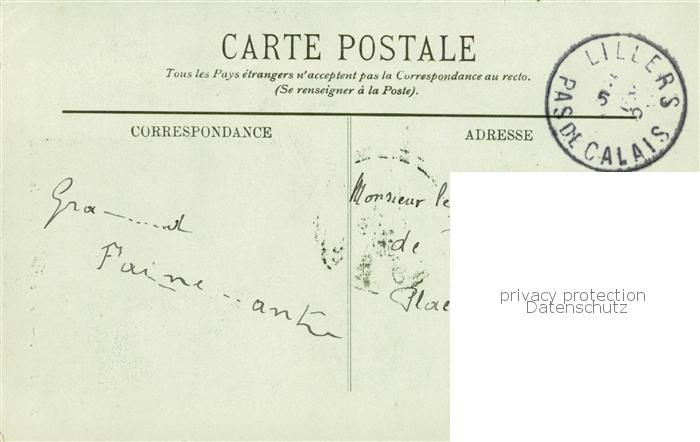 CARTE POSTALE
Tous les Pays étrangers n'acceptent pas la Correspondance au recto.
(Se renseigner à la Poste).
LILLERS
5
PAS DE CALAIS
CORRESPONDANCE
ADRESSE
Monsieur le
de
Plac
Gra......d
Faine...ante
privacy protection
Datenschutz